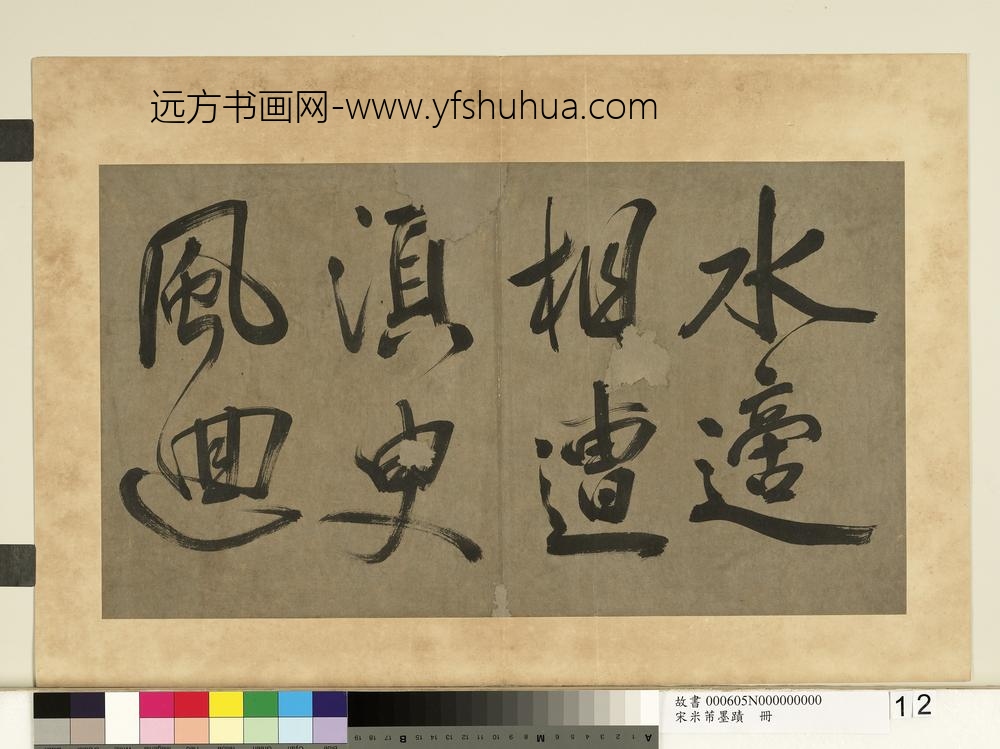 远方书画网-www.yfshuhua.com
水適
相遭
湏臾
風迴
故書 000605N000000000
宋米芾墨蹟 冊
12